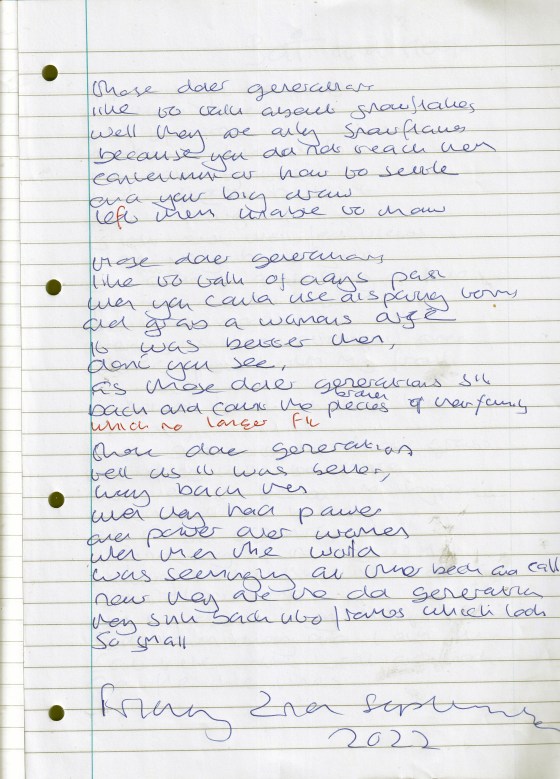 those older generations
like to talk about snowflakes
well they are only snowflakes
because you did not teach them
contentment or how to settle
and your big
left them unable to
those older generations
like to talk of days past
when you could use disparing terms
and grab a womans arse
it was better then,
dont you see,
as those older generations sit
back and count the broken pieces of their family
which no longer fit
those older generations
tell us it was better,
way back then
when they had power
and power over women
when then the world
was seemingly at their beck and call
now they are the old generation
they sink back into frames which look
so small
Friday 2nd September
2022